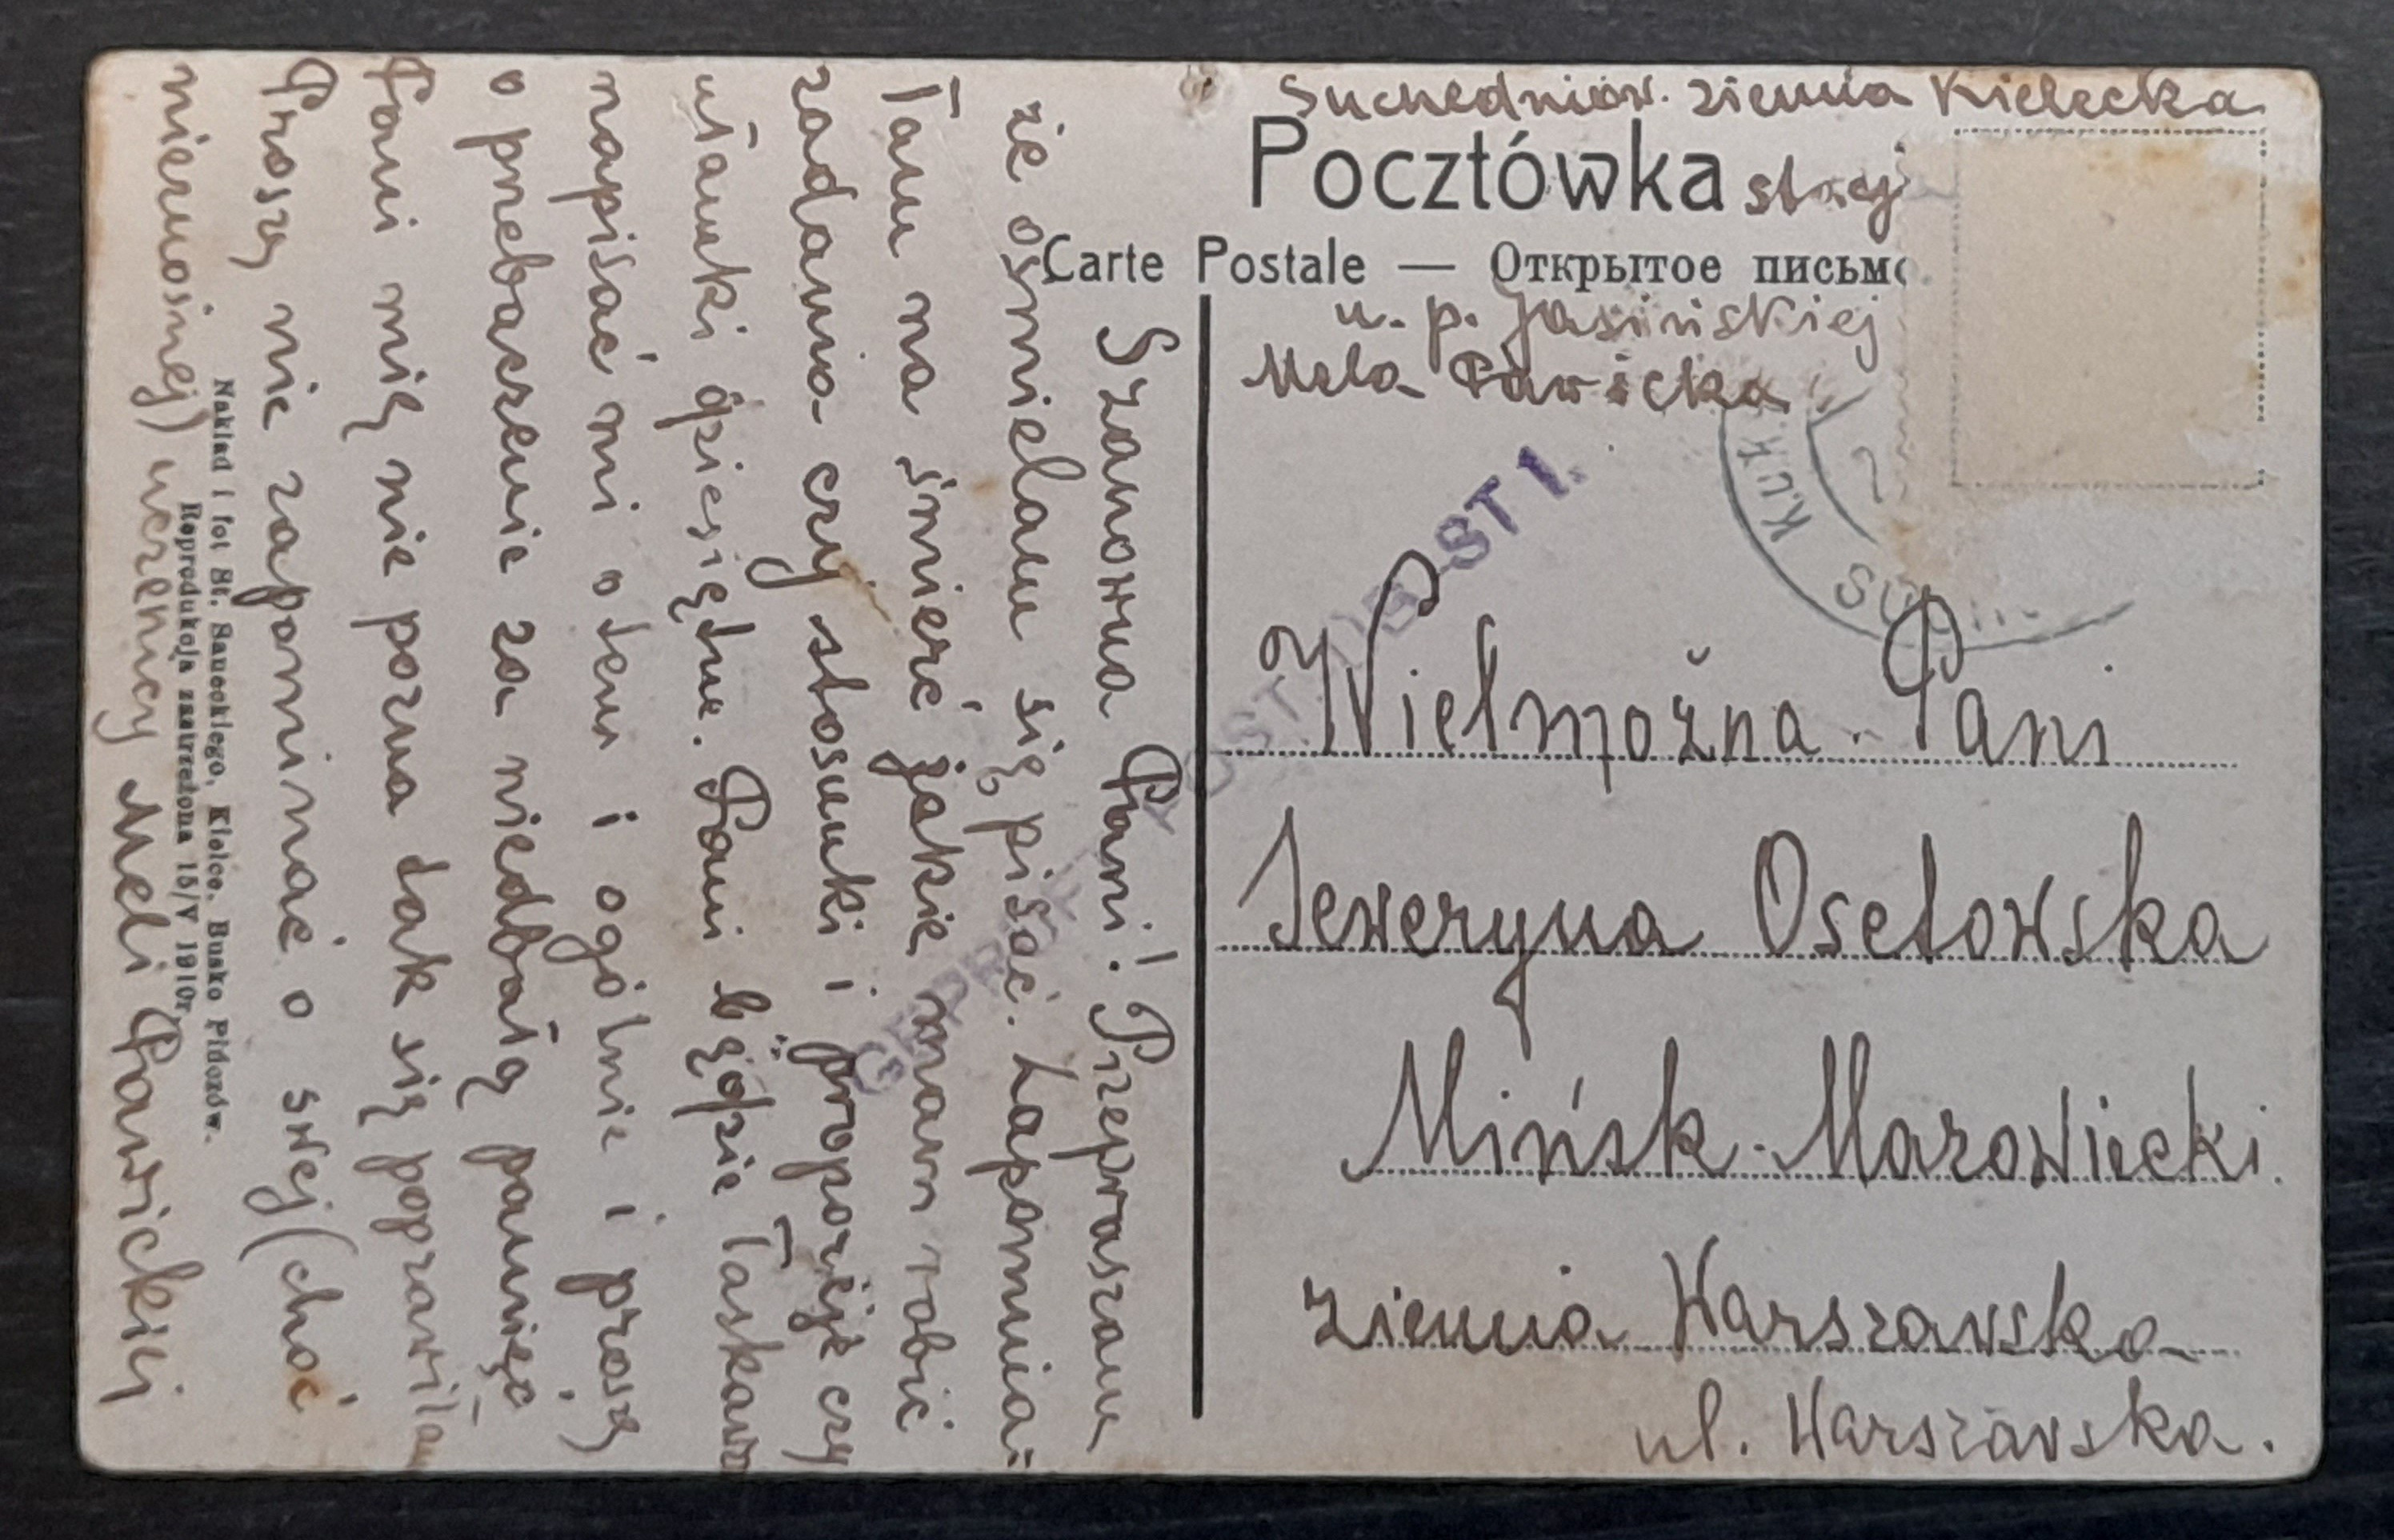 Suchedniów. ziemia Kielecka
Pocztówka stacj
Carte Postale — Открытое письмо
u. p. Jasińskiej
Mela Pawicka
K.u.K.
GEPRÜFT POST ST 1.
Wielmożna Pani
Seweryna Osetowska
Mińsk-Mazowiecki.
ziemia Warszawska
ul. Warszawska.
Szanowna Pani! Przepraszam
że ośmielam się pisać. Zapomnia-
łam na śmierć jakie mam robić
zadania czy stosunki i proporcje czy
ułamki dziesiętne. Pani będzie łaskawa
napisać mi o tem i ogólnie i proszę
o przebaczenie za niedbałą pamięć
Pani mię nie pozna tak się poprawiłam
Proszę nie zapominać o swej (choć
nieznośnej) uczennicy Meli Pawickiej
Nakład i fot St. Saneckiego, Kielce. Busko Pidczów.
Reprodukcja zastrzeżona 15/V 1910r.